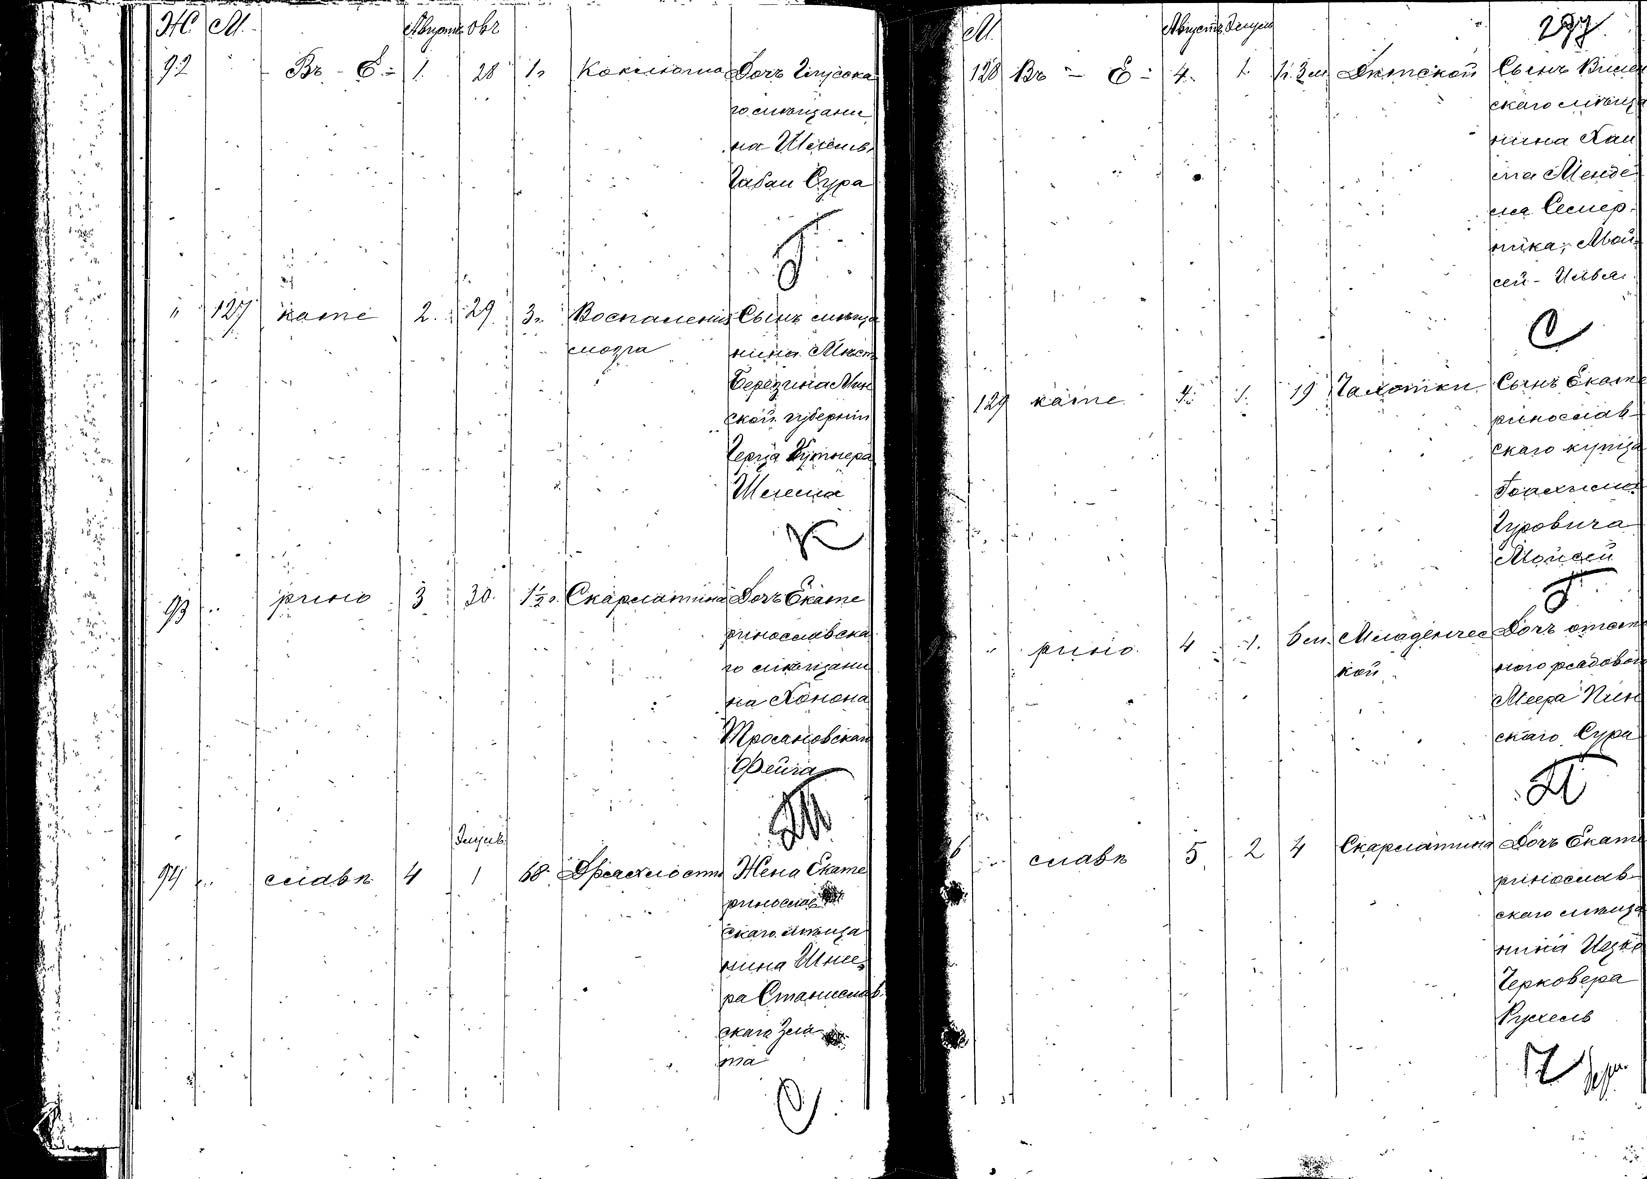 Ж. М. Августъ Овъ
92 Въ - Е = 1. 28 1. Коклюша Дочь Глусска
го мѣщани
на Шевель
Габаи Сура
Г
" 127 кате 2. 29 3. Воспаленія Сынъ мѣща
мозга нина Мѣст.
Березина Мин
ской губерніи
Герца Кутнера
Шлема
К
93 " рино 3 30. 1½. Скарлатина Дочь Екате
ринославска
го мѣщани
на Хонона
Тросановскаго
Фейга
Т
Элулъ
94 " славѣ 4 1 68. Дряхлости Жена Екате
ринослав
скаго мѣща
нина Шнее
ра Станислав
скаго Зла
та
С
М. Августъ Элулъ 297
128 Въ - Е = 4. 1. 1. 3 м. Дѣтской Сынъ Вилен
скаго мѣща
нина Хаи
ма Менде
ля Семер
ника, Мой
сей - Илья
С
129 кате 4. 1. 19 Чахотки Сынъ Екате
ринослав
скаго купца
Гуровича
Мойсей
Г
" рино 4 1. 6 м. Младенчес Дочь отст
кой ного рядового
Меера Пин
скаго Сура
П
славѣ 5. 2 4 Скарлатина Дочь Екате
ринослав
скаго мѣща
нина Ицко
Черковера
Рухель
Ч